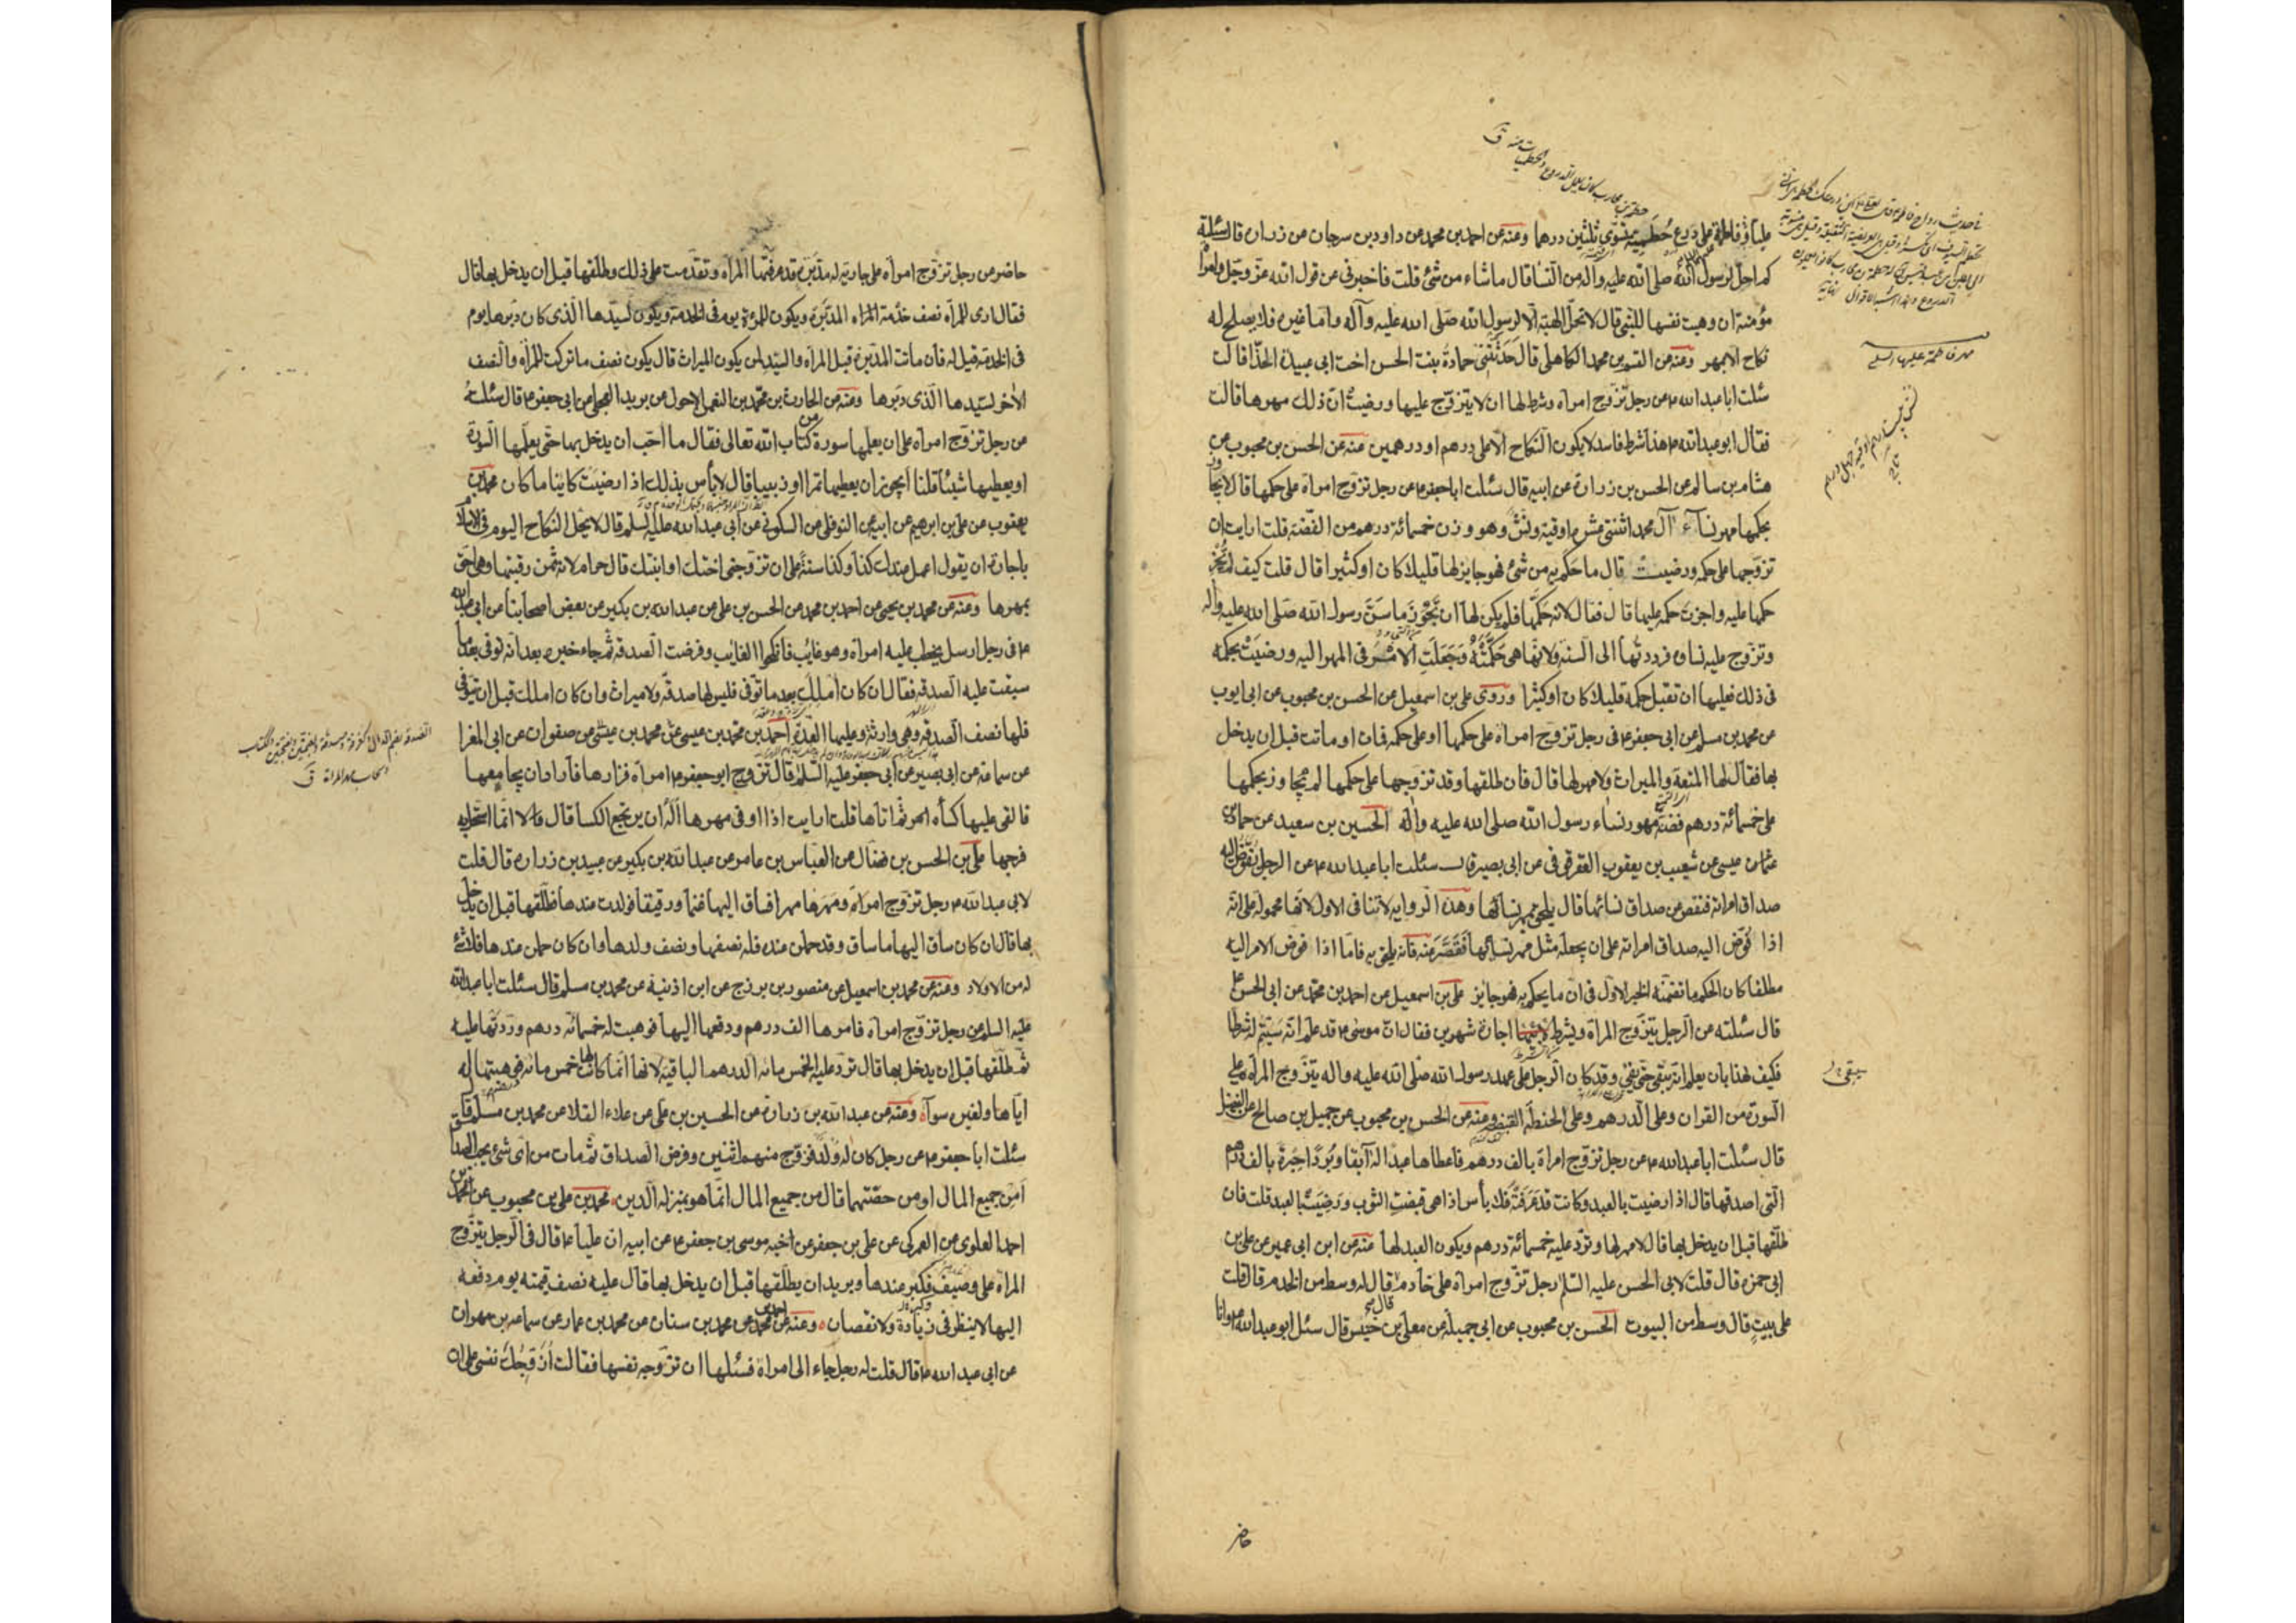 عليا ع فاطمة ع على درع حطمية يسوى ثلثين درهما ومنه عن احمد بن محمد عن داود بن سرحان عن زرارة قال سئلته
كم احل لرسول الله صلى الله عليه واله من النسا قال ما شاء من شئ قلت فاخبرنى عن قول الله عز وجل وامراة
مؤمنة ان وهبت نفسها للنبى قال لا تحل الهبة الا لرسول الله صلى الله عليه وآله واما غيره فلا يصلح له
نكاح الا بمهر ومنه عن القسم بن محمد الكاهلى قال حدثتنى حمادة بنت الحسن اخت ابى عبيدة الحذا قالت
سئلت ابا عبد الله ع عن رجل تزوج امراة وشرط لها ان لا يتزوج عليها ورضيت ان ذلك مهرها قالت
فقال ابو عبد الله ع هذا شرط فاسد لا يكون النكاح الا على درهم او درهمين منه عن الحسن بن محبوب عن
هشام بن سالم عن الحسن بن زرارة عن ابيه قال سئلت ابا جعفر ع عن رجل تزوج امراة على حكمها قال لا يجاوز
بحكمها مهر نساء آل محمد اثنتى عشر اوقية ونش وهو وزن خمسمائة درهم من الفضة قلت ارايت ان
تزوجها على حكمه ورضيت قال ما حكم به من شئ فهو جايز لها قليلا كان او كثيرا قال قلت كيف لم تجز
حكمها عليه واجزت حكمه عليها قال فقال لانه حكمها فلم يكن لها ان تجوز ما سن رسول الله صلى الله عليه واله
وتزوج عليه نساوه فرددتها الى السنة ولانها هى حكمته وجعلت الامر فى المهر اليه ورضيت بحكمه
فى ذلك فعليها ان تقبل حكمه قليلا كان او كثيرا وروى على بن اسمعيل عن الحسن بن محبوب عن ابى ايوب
عن محمد بن مسلم عن ابى جعفر ع فى رجل تزوج امراة على حكمها او على حكمه فمات او ماتت قبل ان يدخل
بها فقال لها المتعة والميراث ولا مهر لها قال فان طلقها وقد تزوجها على حكمها لم يجاوز بحكمها
على خمسمائة درهم فضة مهور نساء رسول الله صلى الله عليه واله الحسين بن سعيد عن حماد عن
عثمان عيسى عن شعيب بن يعقوب العقرقوفى عن ابى بصير قال سئلت ابا عبد الله ع عن الرجل يفوض اليه
صداق امراته فنقص عن صداق نسائها قال يلحق بمهر نسائها وهذه الرواية لا تنافى الاول لانها محمولة على انه
اذا فوض اليه صداق امراته على ان يجعله مثل مهر نسائها فقصر منه فانه يلحق به فاما اذا فوض الامر اليه
مطلقا كان الحكم ما تضمنه الخبر الاول فى ان ما يحكم به فهو جايز على بن اسمعيل عن احمد بن محمد عن ابى الحسن ع
قال سئلته عن الرجل يتزوج المراة ويشرط لابيها اجارة شهرين فقال ان موسى ع قد علم انه سيتم له شرطا
فكيف لهذا بان يعلم انه سيبقى حتى يفى وقد كان الرجل على عهد رسول الله صلى الله عليه واله يتزوج المراة على
السورة من القران وعلى الدرهم وعلى الحنطة القبضة ومنه عن الحسن بن محبوب عن جميل بن صالح عن الفضيل
قال سئلت ابا عبد الله ع عن رجل تزوج امراة بالف درهم فاعطاها عبدا له آبقا وبردا حبرة بالف درهم
التى اصدقها قال اذا رضيت بالعبد وكانت قد عرفته فلا بأس اذا هى قبضت الثوب ورضيت بالعبد قلت فان
طلقها قبل ان يدخل بها قال لا مهر لها وترد عليه خمسمائة درهم ويكون العبد لها منه عن ابن ابى عمير عن على بن
ابى حمزه قال قلت لابى الحسن عليه السلم رجل تزوج امراة على خادم قال له وسط من الخدم قال قلت
على بيت قال وسط من البيوت الحسن بن محبوب عن ابى جميلة عن معلى بن خنيس قال سئل ابو عبد الله ع وانا
مهر فاطمة عليها السلم
سيبقى
حاضر
حاضر عن رجل تزوج امراة على جارية له مدبرة قد عرفتها المرأة وتقدمت على ذلك وطلقها قبل ان يدخل بها قال
فقال ارى للمرأة نصف خدمة المراة المدبرة ويكون للمرءة يوم فى الخدمة ويكون لسيدها الذى كان دبرها يوم
فى الخدمة قيل له فان ماتت المدبرة قبل المرأة والسيد لمن يكون الميراث قال يكون نصف ما تركت للمرأة والنصف
الأخر لسيدها الذى دبرها ومنه عن الحارث بن محمد بن النعمن الاحول عن بريد العجلى عن ابى جعفر ع قال سئلته
عن رجل تزوج امراة على ان يعلمها سورة من كتاب الله تعالى فقال ما احب ان يدخل بها حتى يعلمها السورة
او يعطيها شيئا قلنا ايجوز ان يعطيها تمرا او زبيبا قال لا بأس بذلك اذا رضيت كاينا ما كان محمد بن
يعقوب عن على بن ابرهيم عن ابيه عن النوفلى عن السكونى عن ابى عبد الله عليه السلم قال لا يحل النكاح اليوم فى الاسلام
باجارة ان يقول اعمل عندك كذا وكذا سنة على ان تزوجنى اختك او ابنتك قال حرام لانه ثمن رقبتها وهى احق
بمهرها ومنه عن محمد بن يحيى عن احمد بن محمد عن الحسن بن على عن عبد الله بن بكير عن بعض اصحابنا عن ابى عبد الله
ع فى رجل ارسل يخطب عليه امراة وهو غايب فانكحوا الغايب وفرضت الصدقة ثم جاء خبره بعد انه توفى بعد ما
سيقت عليه الصدقة فقال ان كان املك بعد ما توفى فليس لها صدقة ولا ميراث وان كان املك قبل ان يتوفى
فلها نصف الصدقة وهى وارثه وعليها العدة احمد بن محمد بن عيسى عن محمد بن عيسى عن صفوان عن ابى المغرا
عن سماعة عن ابى بصير عن ابى جعفر عليه السلم قال تزوج ابو جعفر ع امراة فزارها فأراد ان يجامعها
فالقى عليها كسأه ثم اتاها قلت ارايت اذا اوفى مهرها أله ان يرتجع الكسا قال لا انما استحل به
فرجها على بن الحسن بن فضال عن العباس بن عامر عن عبد الله بن بكير عن عبيد بن زرارة قال قلت
لابى عبد الله ع رجل تزوج امراة ومهرها مهرا فساق اليها غنما ورقيقا فولدت عندها فطلقها قبل ان يدخل
بها قال ان كان ساق اليها ما ساق وقد حملن عنده فله نصفها ونصف ولدها وان كان حملن عندها فلا شئ
له من الاولاد ومنه عن محمد بن اسمعيل عن منصور بن بزرج عن ابن اذنية عن محمد بن مسلم قال سئلت ابا عبد الله
عليه السلم عن رجل تزوج امراة فامهرها الف درهم ودفعها اليها فوهبت له خمسمائة درهم وردتها عليه
ثم طلقها قبل ان يدخل بها قال ترد عليه الخمس مائه الدرهم الباقية لانها انما كانت لها خمس مائه فوهبتها له
اياها ولغيره سوآء ومنه عن عبد الله بن زرارة عن الحسين بن على عن علاء القلا عن محمد بن مسلم قال
سئلت ابا جعفر ع عن رجل كان له ولد فزوج منهم اثنين وفرض الصداق ثم مات من اى شئ يحسب الصداق
أمن جميع المال او من حصتهما قال من جميع المال انما هو بمنزلة الدين محمد بن على بن محبوب عن محمد بن
احمد العلوى عن العمركى عن على بن جعفر عن اخيه موسى بن جعفر ع عن ابيه ان عليا ع قال فى الرجل يتزوج
المراة على وصيف فكبر عندها ويريد ان يطلقها قبل ان يدخل بها قال عليه نصف قيمته يوم دفعه
اليها لا ينظر فى زيادة ولا نقصان ومنه عن احمد بن محمد عن محمد بن سنان عن محمد بن عمار عن سماعه بن مهران
عن ابى عبد الله ع قال قلت له رجل جاء الى امراة فسئلها ان تزوجه نفسها فقالت ازوجك نفسى على ان